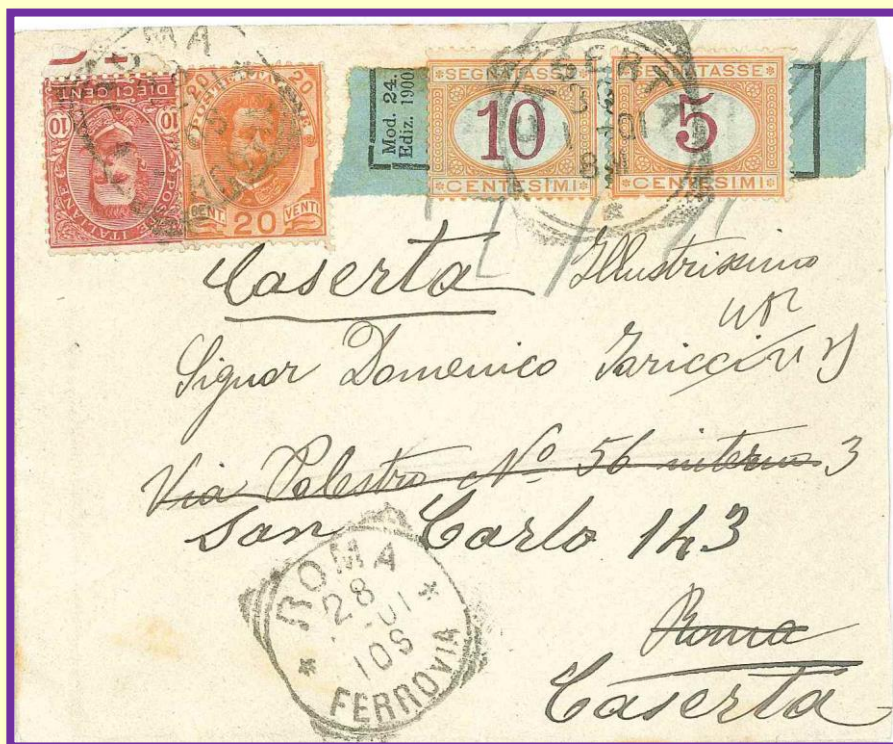 DIECI CENT.
10 10
POSTE ITALIANE
20 20
20
CENT VENTI
Mod. 24.
Ediz. 1900
SEGNATASSE
10
CENTESIMI
SEGNATASSE
5
CENTESIMI
Caserta Illustrissimo
Signor Domenico
Via Palestro Nº 56 interno 3
San Carlo 143
ROMA
28
10 S
FERROVIA
Roma
Caserta